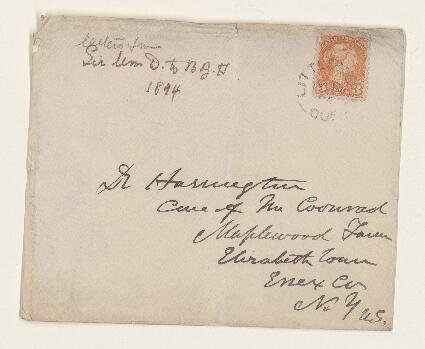 Letters from
Sir Wm D. to B J H
1894
Dr Harrington
Care of Mr Coonrad
Maplewood Farm
Elizabeth Town
Essex Co
N. Y U.S.
QUE
3